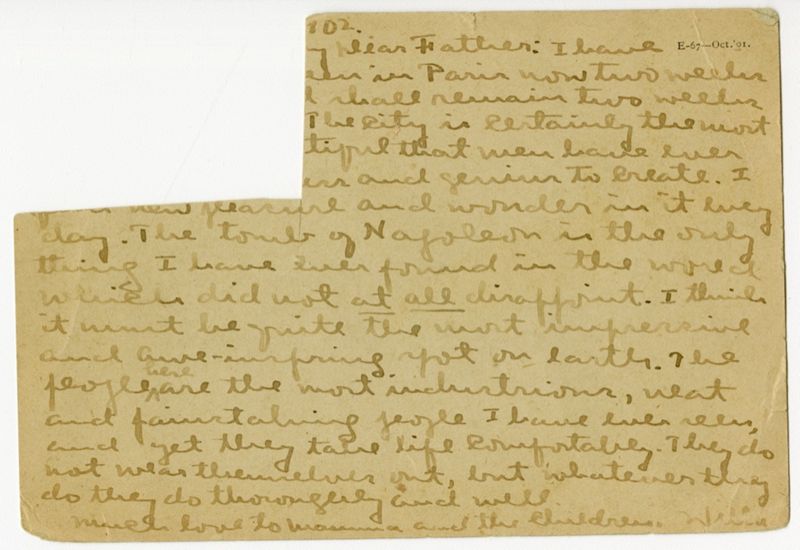 902.
y dear Father: I have
E-67—Oct. '01.
een in Paris now two weeks
d shall remain two weeks
The city is certainly the most
tiful that men have ever
and genius to create. I
new pleasure and wonder in it every
day. The tomb of Napoleon is the only
thing I have ever found in the world
which did not at all disappoint. I think
it must be quite the most impressive
and awe-inspring spot on earth. The
people here are the most industrious, neat
and painstaking people I have ever seen,
and yet they take life comfortably. They do
not wear themselves out, but whatever they
do they do thoroughly and well
Much love to mamma and the children. Willie